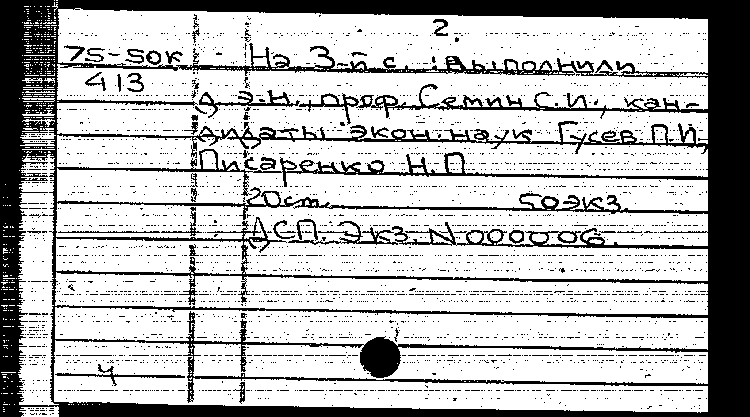 2.
75-50к На 3-й с. : Выполнили
413
д.э.н., проф. Семин С.И., кан-
дидаты экон. наук Гусев П.И.,
Писаренко Н.П
20см. 50экз.
ДСП. Экз. N 000006.
4